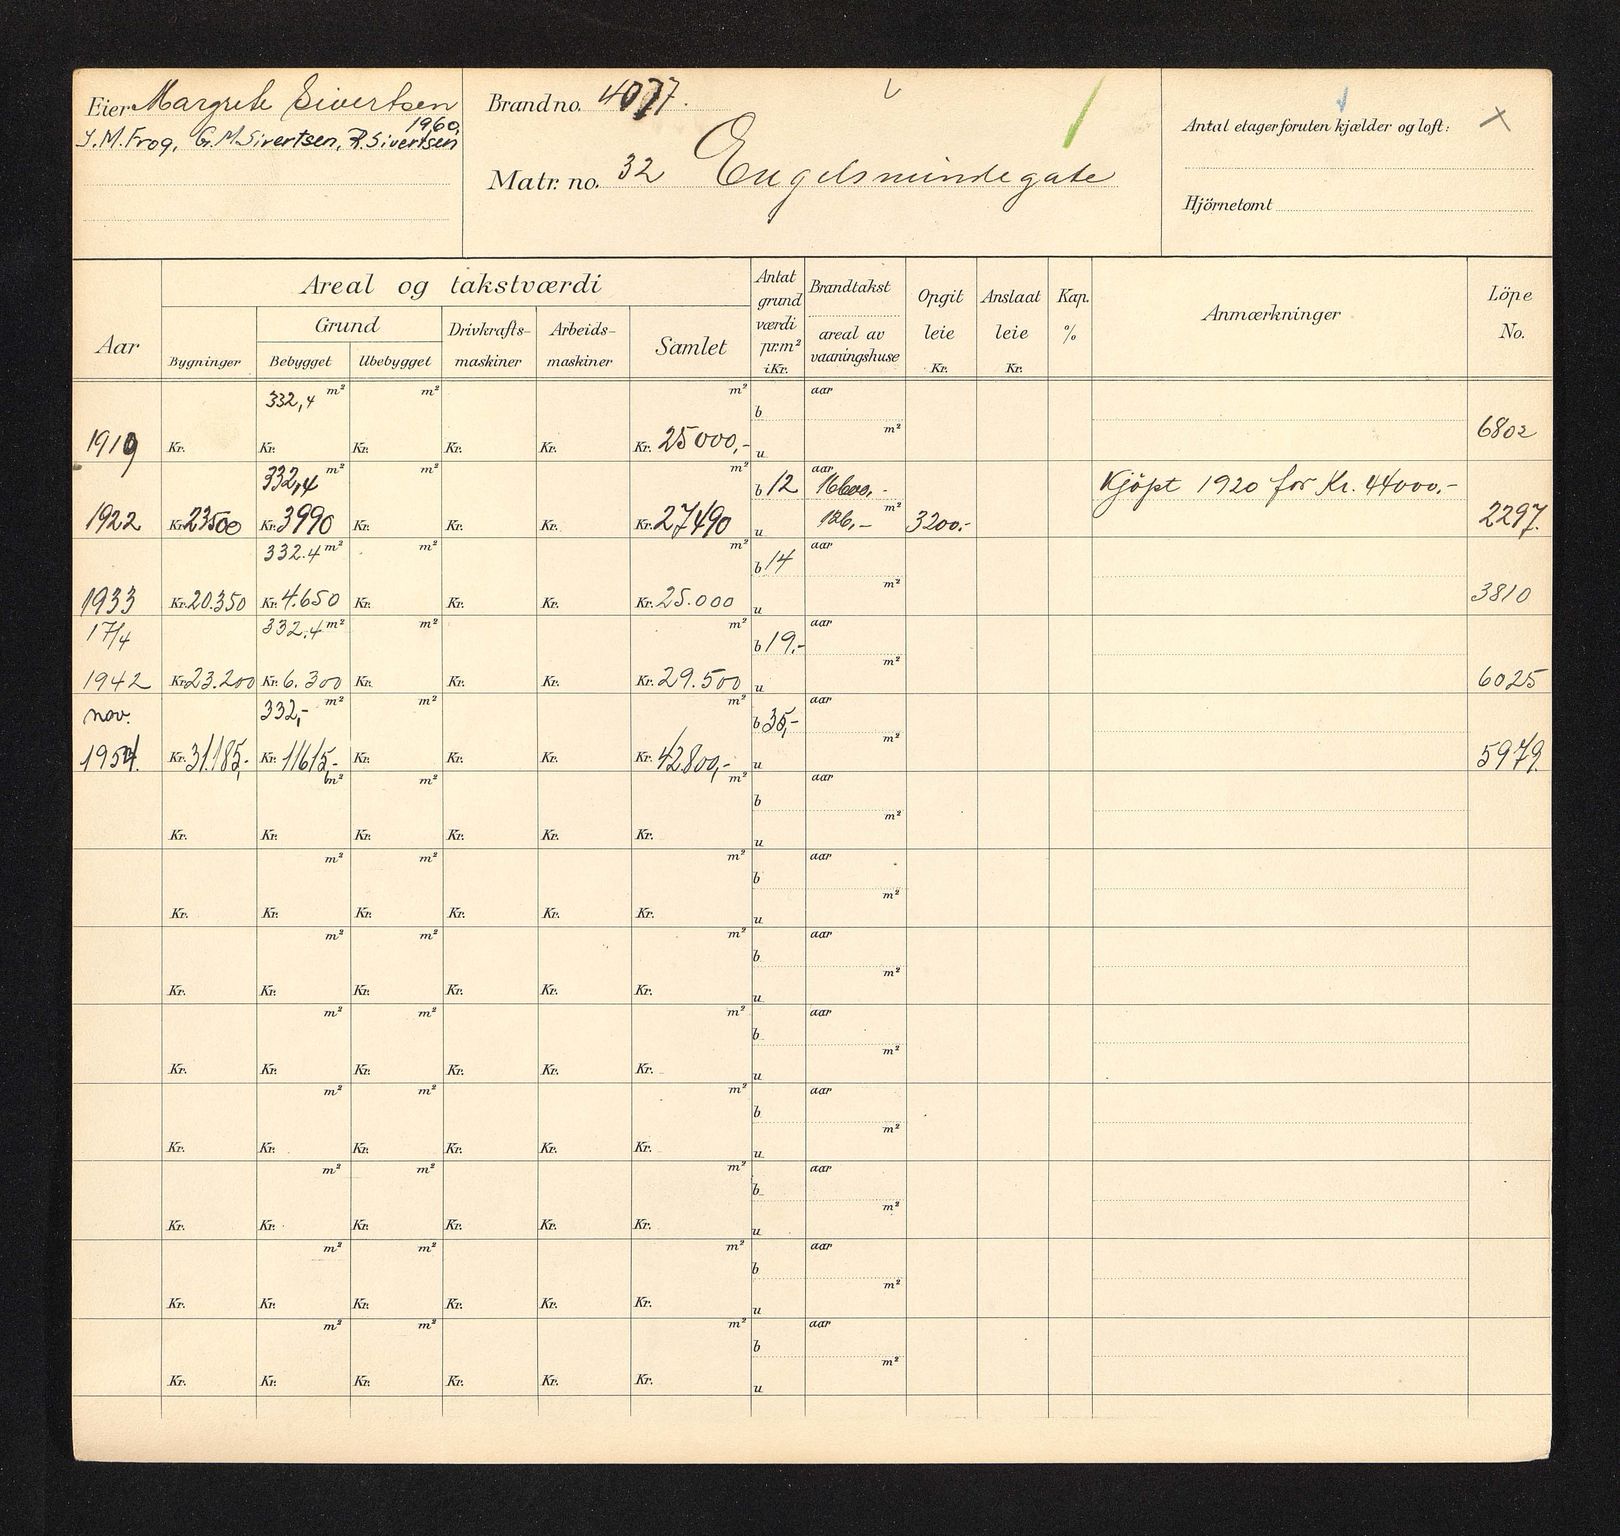 Eier Margrete Sivertsen
1960,
J.M.Frog, G.M.Sivertsen, R.Sivertsen
Brand no. 4077.
Matr. no. 32 Engelsmindegate
Antal etager foruten kjælder og loft: X
Hjörnetomt
Aar
Areal og takstværdi
Bygninger
Grund
Bebygget Ubebygget
Drivkrafts-maskiner
Arbeids-maskiner
Samlet
Antat grund værdi pr.m² i Kr.
Brandtakst
areal av vaaningshuse
Opgit leie Kr.
Anslaat leie Kr.
Kap. %
Anmærkninger
Löpe No.
332,4 m² m² m² b aar
1919 Kr. Kr. Kr. Kr. Kr. Kr. 25000,- u m² 6802
332,4 m² m² m² b 12 aar 16600,- Kjöpt 1920 for Kr. 44000,-
1922 Kr. 23500 Kr. 3990 Kr. Kr. Kr. Kr. 27490 u 126,- m² 3200.- 2297.
332.4 m² m² m² b 14 aar
1933 Kr. 20.350 Kr. 4.650 Kr. Kr. Kr. Kr. 25.000 u m² 3810
17/4 332.4 m² m² m² b 19,- aar
1942 Kr. 23.200 Kr. 6.300 Kr. Kr. Kr. Kr. 29.500 u m² 6025
nov. 332,- m² m² m² b 35,- aar
1954. Kr. 31.185,- Kr. 11615,- Kr. Kr. Kr. Kr. 42800,- u m² 5979.
m² m² m² b aar
Kr. Kr. Kr. Kr. Kr. Kr. u m²
m² m² m² b aar
Kr. Kr. Kr. Kr. Kr. Kr. u m²
m² m² m² b aar
Kr. Kr. Kr. Kr. Kr. Kr. u m²
m² m² m² b aar
Kr. Kr. Kr. Kr. Kr. Kr. u m²
m² m² m² b aar
Kr. Kr. Kr. Kr. Kr. Kr. u m²
m² m² m² b aar
Kr. Kr. Kr. Kr. Kr. Kr. u m²
m² m² m² b aar
Kr. Kr. Kr. Kr. Kr. Kr. u m²
m² m² m² b aar
Kr. Kr. Kr. Kr. Kr. Kr. u m²